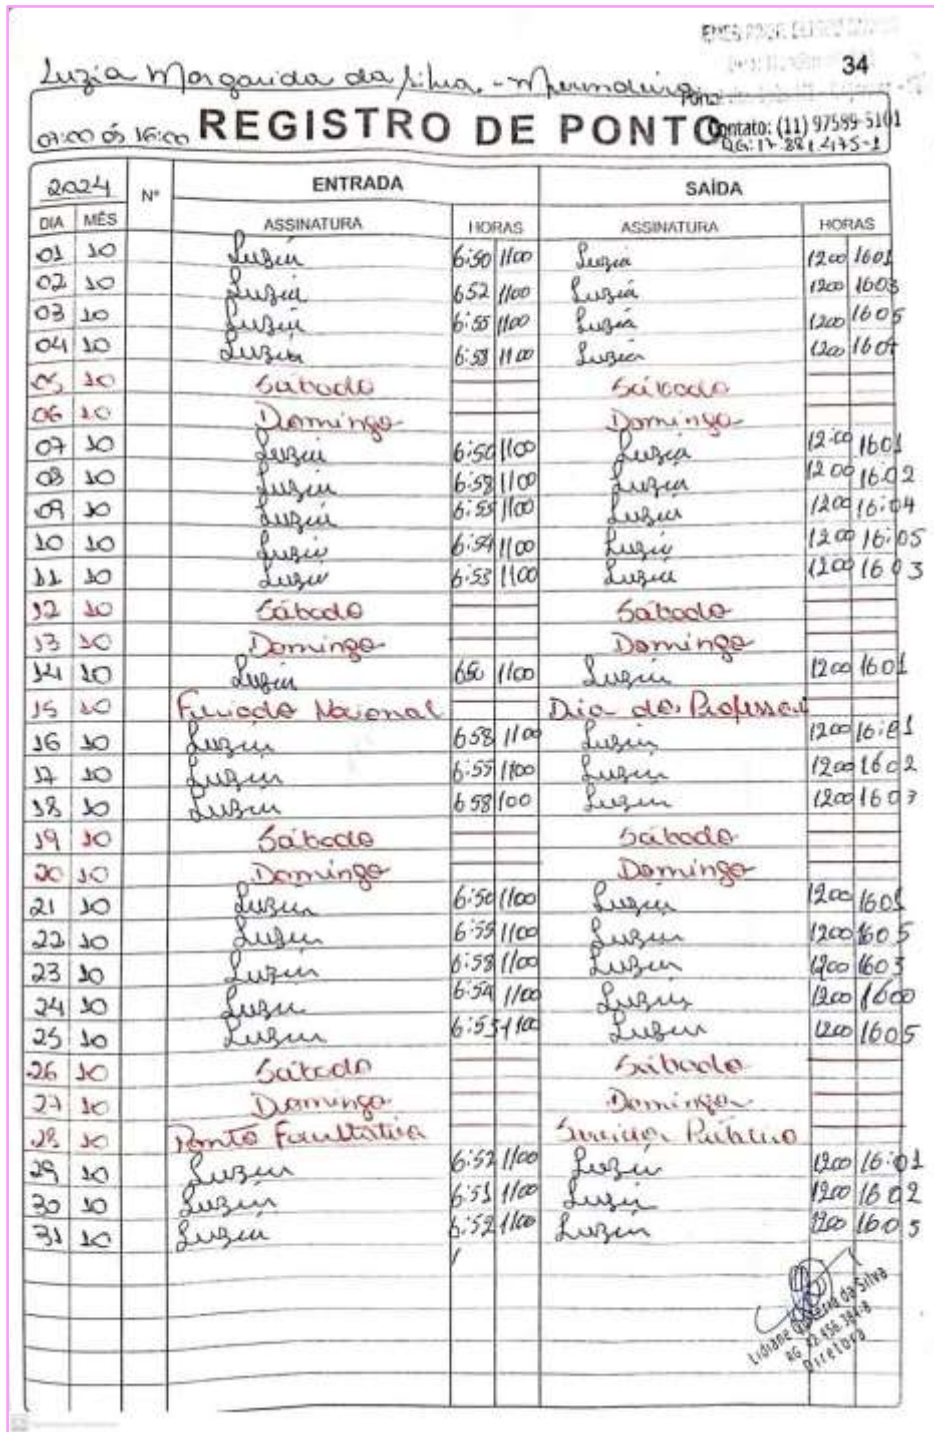 34
Luzia Margarida da Silva - Merendeira
07:00 ás 16:00 REGISTRO DE PONTO Contato: (11) 97589-5101
2024 Nº ENTRADA SAÍDA
DIA MÊS ASSINATURA HORAS ASSINATURA HORAS
01 10 Luzia 6:50 1100 Luzia 1200 1601
02 10 Luzia 652 1100 Luzia 1200 1603
03 10 Luzia 6:55 1100 Luzia 1200 1605
04 10 Luzia 6:58 1100 Luzia 1200
05 10 Sábado Sábado
06 10 Domingo Domingo
07 10 Luzia 6:50 1100 Luzia 12:00 1601
08 10 Luzia 6:58 1100 Luzia 1200 16:02
09 10 Luzia 6:55 1100 Luzia 1200 16:04
10 10 Luzia 6:54 1100 Luzia 1200 16:05
11 10 Luzia 6:53 1100 Luzia 1200 1603
12 10 Sábado Sábado
13 10 Domingo Domingo
14 10 Luzia 650 1100 Luzia 1200 1601
15 10 Feriado Nacional Dia do Professor
16 10 Luzia 658 1100 Luzia 1200 16:01
17 10 Luzia 6:55 1100 Luzia 1200 1602
18 10 Luzia 658 100 Luzia 1200 1603
19 10 Sábado Sábado
20 10 Domingo Domingo
21 10 Luzia 6:50 1100 Luzia 1200 1601
22 10 Luzia 6:55 1100 Luzia 1200 1605
23 10 Luzia 6:58 1100 Luzia 1200 1603
24 10 Luzia 6:54 1100 Luzia 1200 1600
25 10 Luzia 6:55 1100 Luzia 1200 1605
26 10 Sábado Sábado
27 10 Domingo Domingo
28 10 Ponto Facultativo Servidor Público
29 10 Luzia 6:52 1100 Luzia 1200 16:01
30 10 Luzia 6:51 1100 Luzia 1200 1602
31 10 Luzia 6:52 1100 Luzia 1200 1605
Lidiane da Silva
Diretora